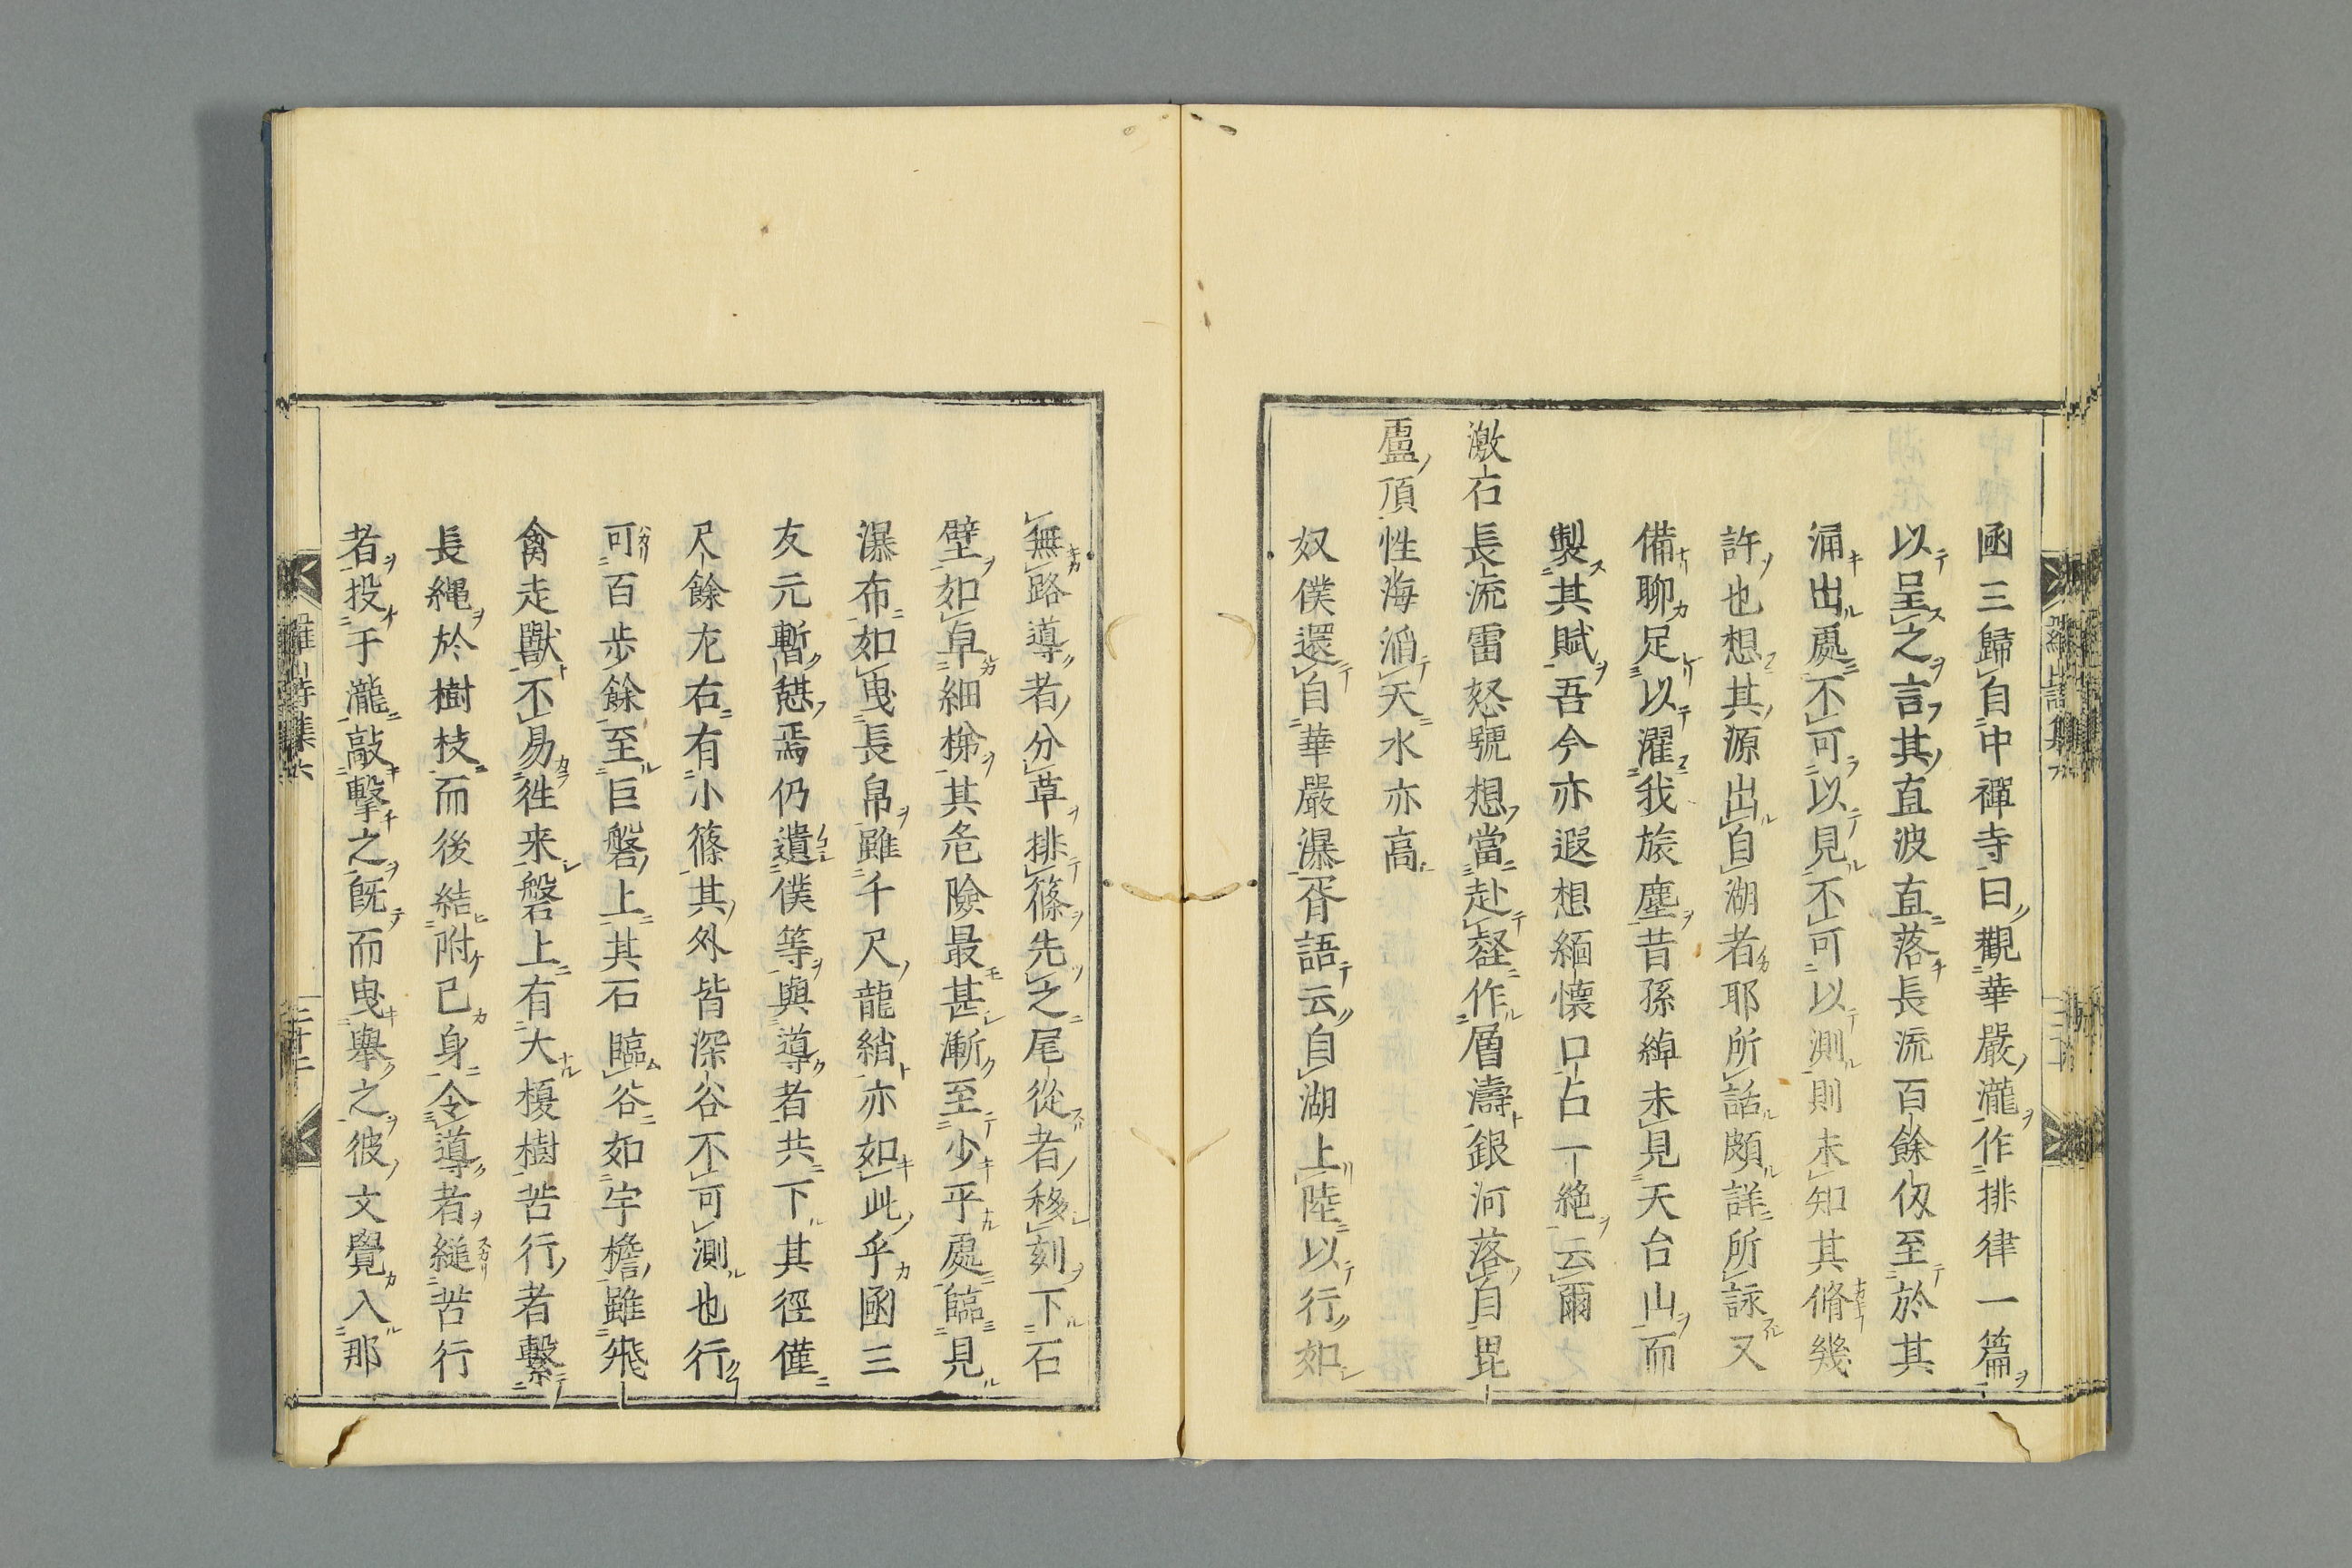 凾三歸自中禪寺曰觀華嚴瀧作排律一篇
以呈之言其直波直落長流百餘仭至於其
涌出處不可以見不可以測則未知其脩幾
許也想其源出自湖者耶所話頗詳所詠又
備聊足以濯我旅塵昔孫綽未見天台山而
製其賦吾今亦遐想緬懷口占一絶云爾
激石長流雷怒號想當赴壑作層濤銀河落自毘
盧頂性海滔天水亦高
奴僕還自華嚴瀑胥語云自湖上陸以行如
無路導者分草排篠先之尾從者移刻下石
壁如卓細梯其危險最甚漸至少平處臨見
瀑布如曳長帛雖千尺龍綃亦如此乎凾三
友元暫憇焉仍遺僕等與導者共下其徑僅
尺餘左右有小篠其外皆深谷不可測也行
可百步餘至巨磐上其石臨谷如宇檐雖飛
禽走獸不易徃来磐上有大榎樹苦行者繫
長繩於樹枝而後結附己身令導者縋苦行
者投于瀧敲擊之既而曳擧之彼文覺入那
羅山詩集